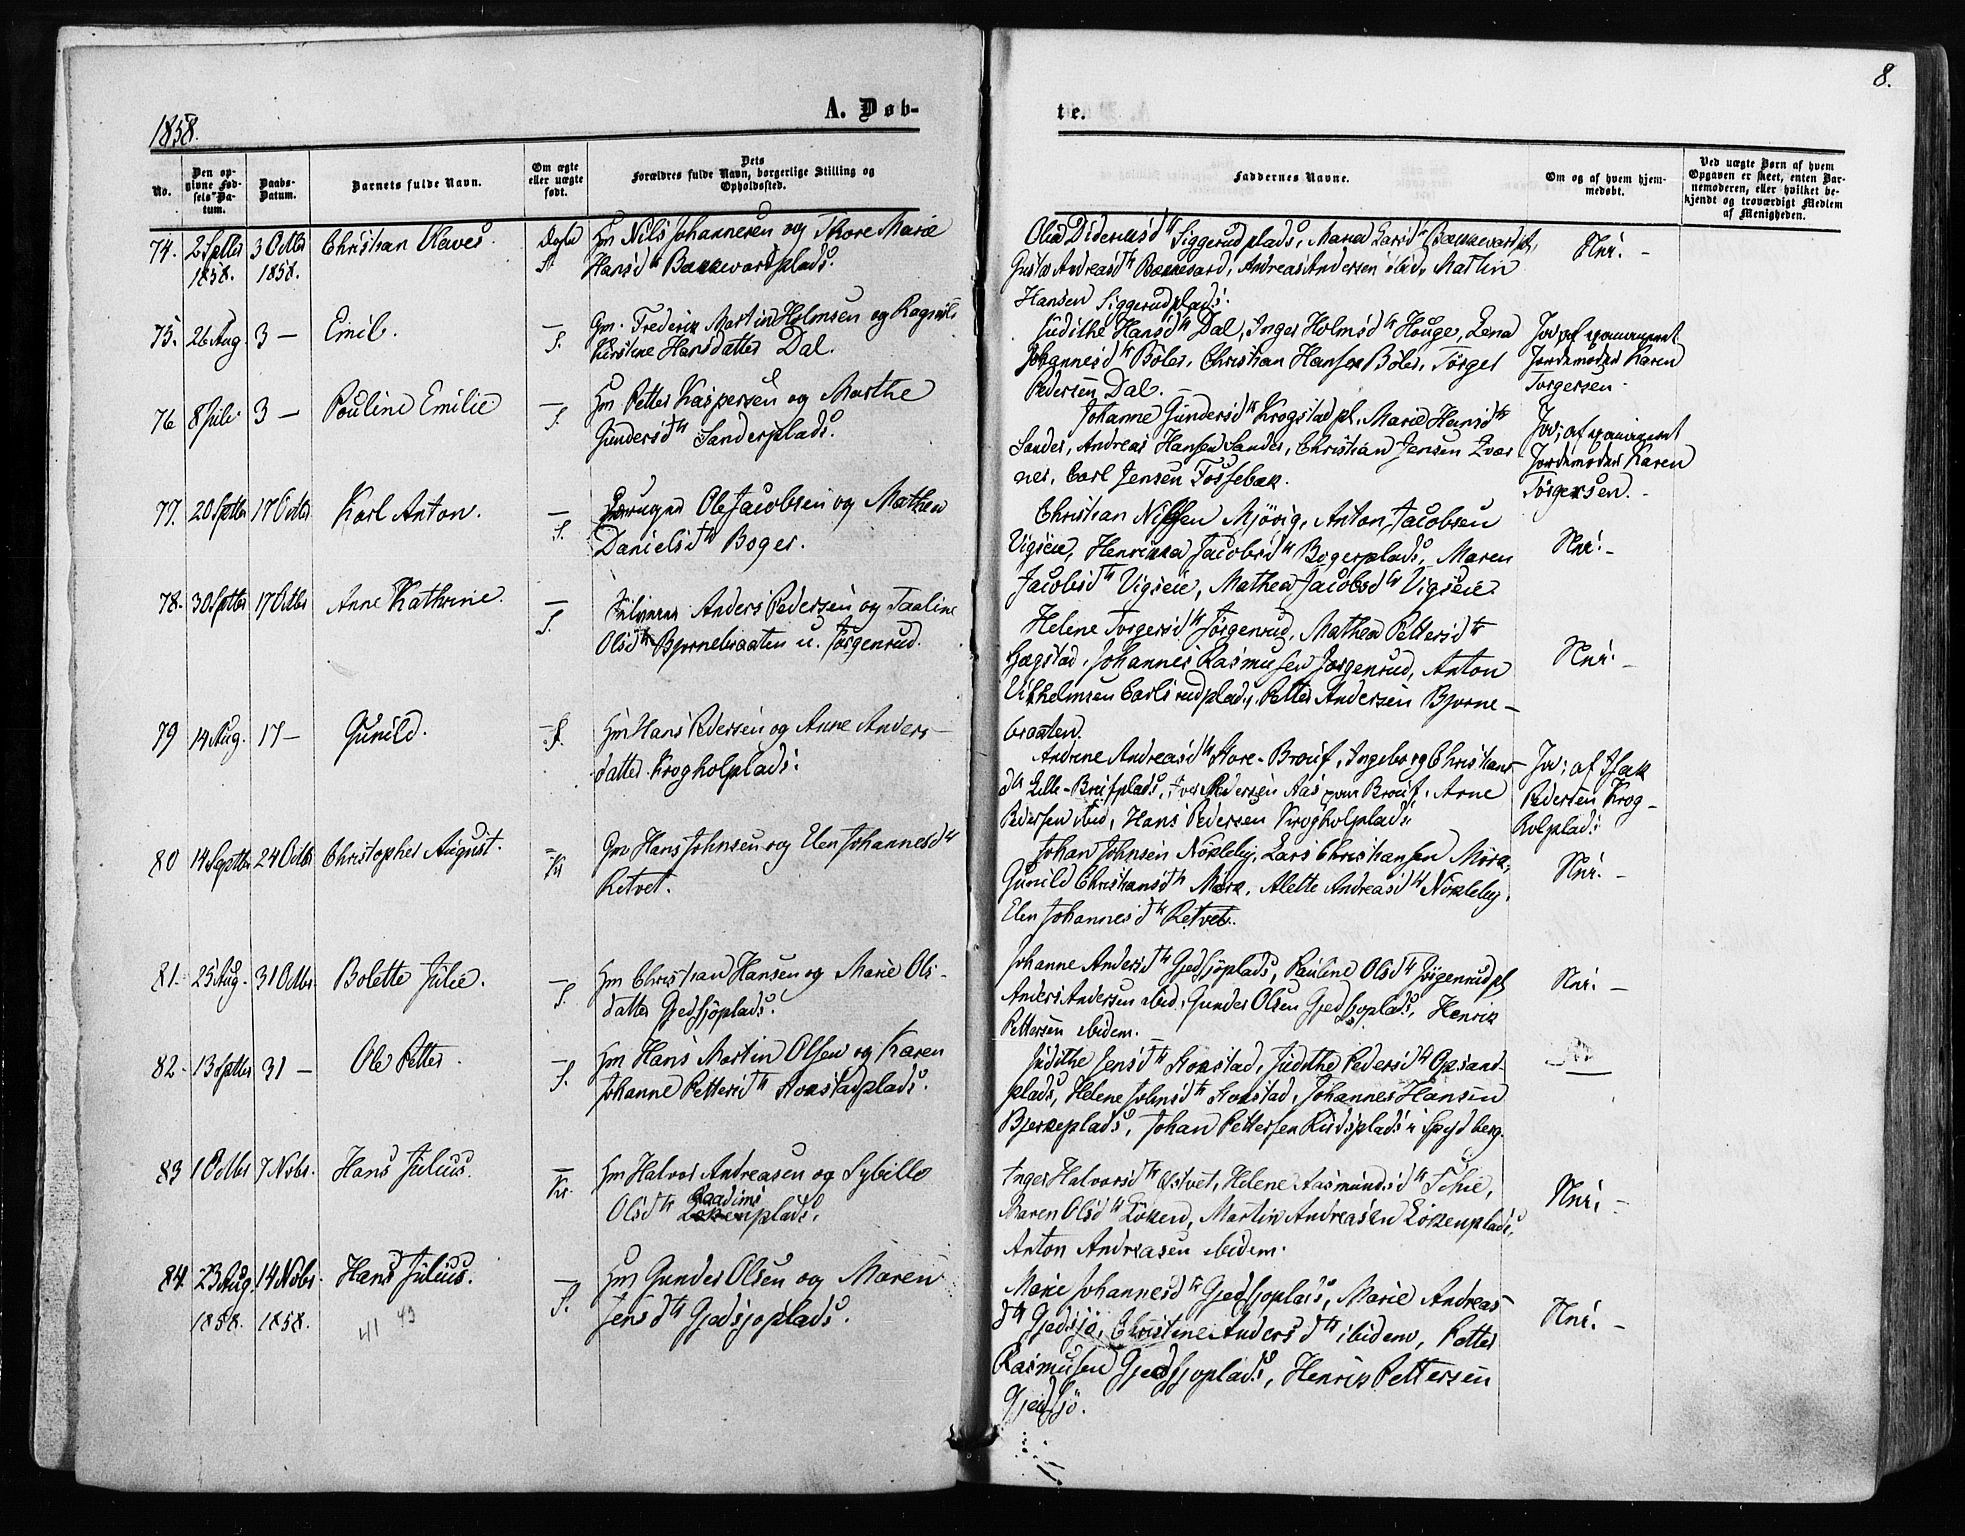 8.
1858.
A. Døb-
te.
No.
Den op-
givne Fød-
sels Da-
tum.
Daabs-
Datum.
Barnets fulde Navn.
Om ægte
eller uægte
født.
Dets
Forældres fulde Navn, borgerlige Stilling og
Opholdssted.
Faddernes Navne.
Om og af hvem hjem-
medøbt.
Ved uægte Børn af hvem
Opgaven er skeet, enten Bar-
nemoderen, eller hvilket be-
kjendt og troværdigt Medlem
af Menigheden.
74. 2 Septbr 3 Octbr Christian
1858. 1858.
Hm Nils Johannesen og Thore Marie
Hansdtr Bakkevartplads.
Olea Dideriksdtr Siggerudplads, Maren Larsdtr Bakkevartpl,
Gustav Andreasdtr Andreas Andersen ibid, Martin
Hansen Siggerudplads.
Nei. -
75. 26 Aug 3 — Emil. — S.
Gm. Frederik Martin Holmsen og
Kirstine Hansdatter Dal.
Judithe Hansdtr Dal, Inger Holmsdtr Houge, Lena
Johannesdtr Böler, Christian Hansen Böler, Torger
Pedersen Dal.
Ja, af examineret
Jordemoder Karen
Torgersen.
76 8 Juli 3 — Pouline Emilie — S.
Hm Petter Kaspersen og Marthe
Gundersdtr Sanderplads.
Johanne Gundersdtr Krogstadpl. Marie Hansdtr
Sander, Andreas Hansen Sander, Christian Jensen Tvær
nes, Carl Jensen Fossebæk.
Ja, af examineret
Jordemoder Karen
Torgersen. -
77. 20 Septbr 17 Octbr Karl Anton. — S.
Ole Jacobsen og Mathea
Danielsdtr Boger.
Christian Nilsen Mjövig, Anton Jacobsen
Vigseie, Henrikka Jacobsdtr Bogerplads, Maren
Jacobsdtr Vigseie, Mathea Jacobsdtr Vigseie.
Nei. -
78. 30 Septbr 17 Octbr Anne Kathrine. — S.
Anders Pedersen og Taaline
Olsdtr Bjørnebraaten u. Jørgenrud.
Helene Torgersdtr Jørgenrud, Mathea Pettersdtr
Hagstad, Johannes Rasmusen Jørgenrud, Anton
Vilhelmsen Carlsrudplads, Petter Andersen Bjørne-
braaten.
Nei. -
79 14 Aug. 17 — Gunild. — S.
Hm Hans Pedersen og Anne Anders-
datter Krogholplads.
Andrine Andreasdtr Store-Breif, Ingeborg Christians-
dtr Lille-Breifplads, Pedersen Aas Breif, Arne
Pedersen ibid, Hans Pedersen Krogholplads.
Ja; af Isak
Pedersen Krog-
holplads
80 14 Septbr 24 Octbr Christopher August. — Kr
Gm Hans Johnsen og Elen Johannesdtr
Retvet.
Johan Johnsen Nökleby, Lars Christiansen Mörk,
Gunild Christiansdtr Mörk, Alette Andreasdtr Nökleby,
Elen Johannesdtr Retvet.
Nei. -
81. 25 Aug. 31 Octbr Bolette Julie. — S.
Hm Christian Hansen og Marie Ols-
datter Gjedsjöplads.
Johanne Andersdtr Gjedsjöplads, Pauline Olsdtr Jörgenrudpl
Anders Andersen ibid, Gunder Olsen Gjedsjöplads, Henrik
Pettersen ibidem.
Nei. -
82. 13 Septbr 31 — Ole Petter. — S.
Hm Hans Martin Olsen og Karen
Johanne Pettersdtr Stokstadplads.
Judithe Jensdtr Stokstad, Judithe Pedersdtr Opsand-
plads, Helene Johnsdtr Stokstad, Johannes Hansen
Bjerkeplads, Johan Pettersen Rudsplads i Spydberg.
83 1 Octbr 7 Novbr. Hans Julius. — Kr.
Hm Halvor Andreasen og Sybille
Olsdtr Lökenplads.
Inger Halvorsdtr Östvet, Helene Aasmundsdtr Tohie,
Maren Olsdtr Löken, Martin Andreasen Lökenplads,
Anton Andreasen ibidem.
Nei. -
84. 23 Aug. 14 Novbr. Hans Julius. — S.
1858. 1858. 41 43
Hm Gunder Olsen og Maren
Jensdtr Gjedsjöplads.
Marie Johannesdtr Gjedsjöplads, Marie Andreas
dtr Gjedsjö, Christine Andersdtr ibidem, Petter
Rasmusen Gjedsjöplads, Henrik Pettersen
Gjedsjö.
Nei. -